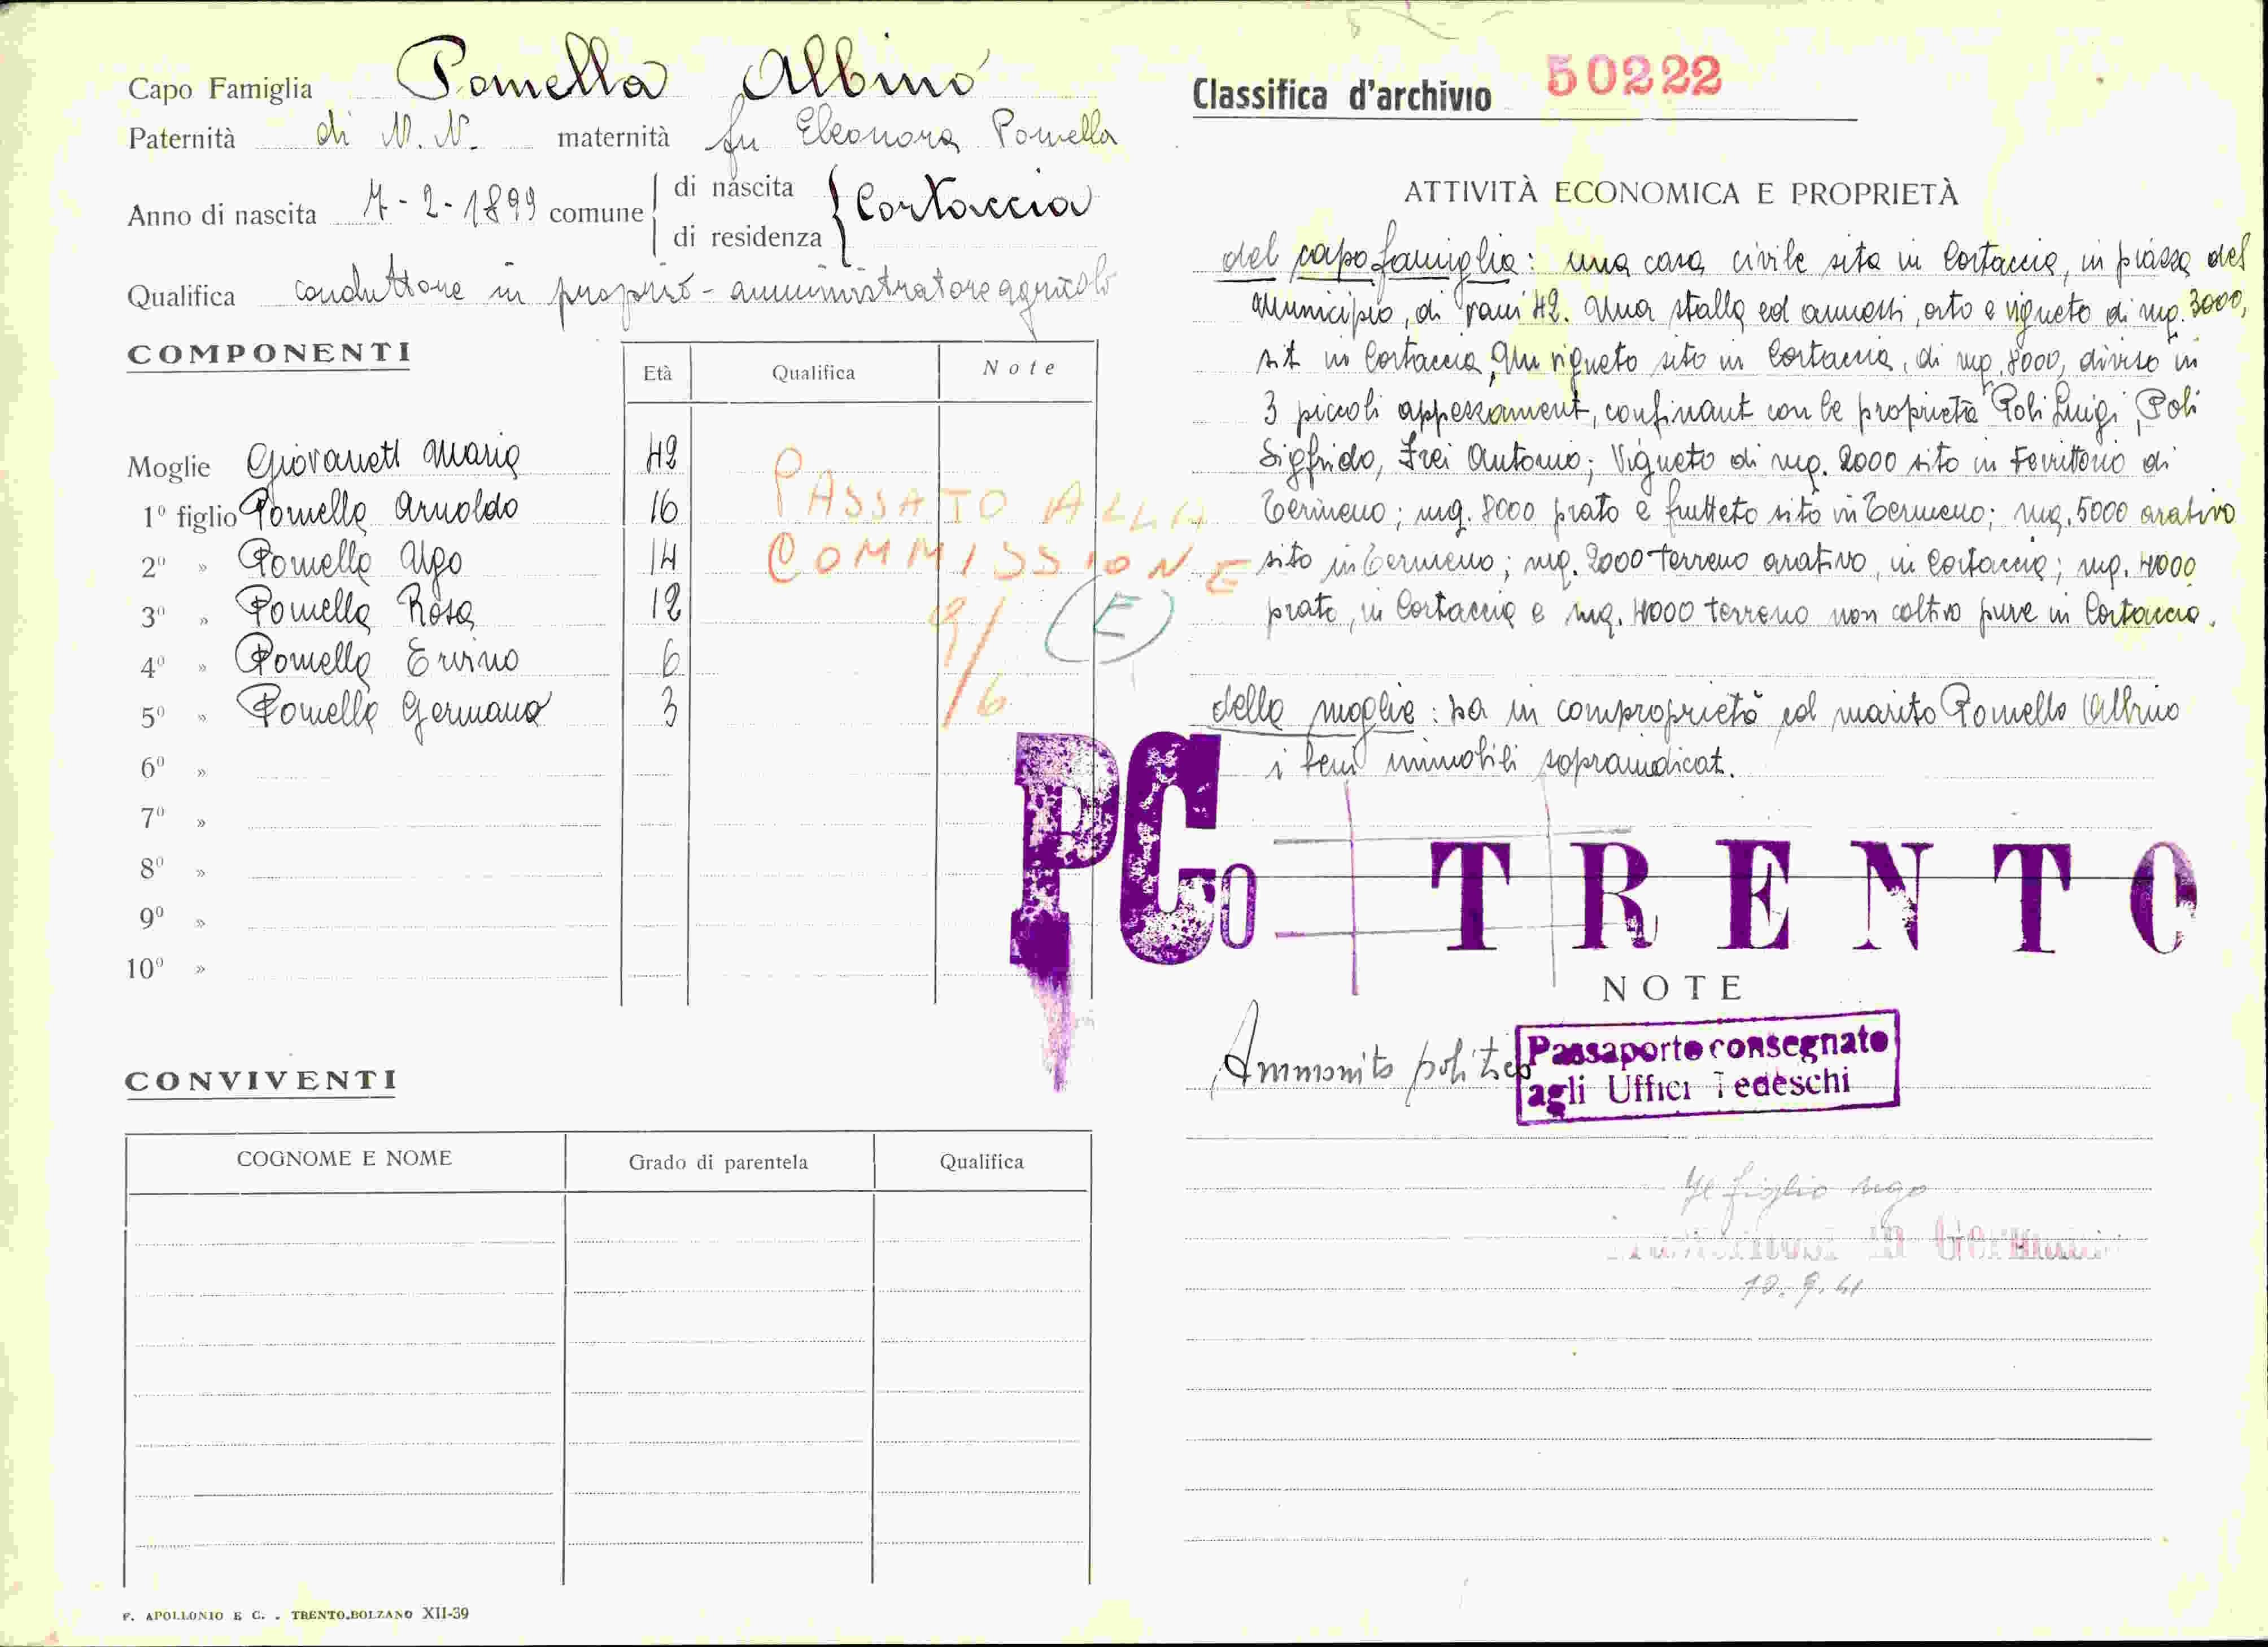 Capo Famiglia Pomella Albino
Paternità di N. N. maternità fu Eleonora Pomella
Anno di nascita 7-2-1899 comune di nascita di residenza Cortaccia
Qualifica conduttore in proprio - amministratore agricolo
COMPONENTI
Età Qualifica Note
Moglie Giovanett Maria 42
1º figlio Pomella Arnoldo 16
2º » Pomella Ugo 14
3º » Pomella Rosa 12
4º » Pomella Ervino 6
5º » Pomella Germana 3
6º »
7º »
8º »
9º »
10º »
PASSATO ALLA
COMMISSIONE
9/6
E
CONVIVENTI
COGNOME E NOME Grado di parentela Qualifica
F. APOLLONIO E C. - TRENTO-BOLZANO XII-39
Classifica d'archivio 50222
ATTIVITÀ ECONOMICA E PROPRIETÀ
del capofamiglia: una casa civile sita in Cortaccia, in piazza del
Municipio, di vani 42. Una stalla ed annessi, orto e vigneto di mq. 3000,
sit in Cortaccia, Un vigneto sito in Cortaccia, di mq. 8000, diviso in
3 piccoli appezzament, confinant con le proprietà Poli Luigi, Poli
Sigfrido, Frei Antonio; Vigneto di mq. 2000 sito in territorio di
Termeno; mq. 8000 prato e frutteto sito in Termeno; mq. 5000 arativo
sito in Termeno; mq. 2000 terreno arativo, in Cortaccia; mq. 4000
prato, in Cortaccia e mq. 4000 terreno non coltivo pure in Cortaccia.
della moglie: ha in comproprietà col marito Pomella Albino
i beni immobili sopraindicat.
PCo TRENTO
NOTE
Ammonito politico
Passaporto consegnato
agli Uffici Tedeschi
Il figlio Ugo
in Germania